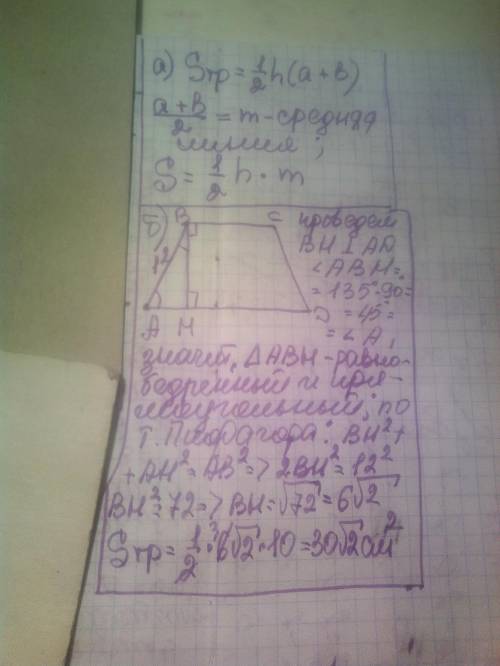 а) Sтр = 1/2 h(a+в)
(a+в)/2 = m-средняя
линия;
S = 1/2 h · m
б) B C проведем
BH ⊥ AD
12 ∠ABH =
= 135°-90=
D = 45°=
A H = ∠A,
значит, ΔABH - равно-
бедренный и пря-
моугольный; по
т. Пифагора: BH²+
+ AH² = AB² => 2BH² = 12²
BH² = 72 => BH = √72 = 6√2
Sтр = 1/2 · 6√2 · 10 = 30√2 см²